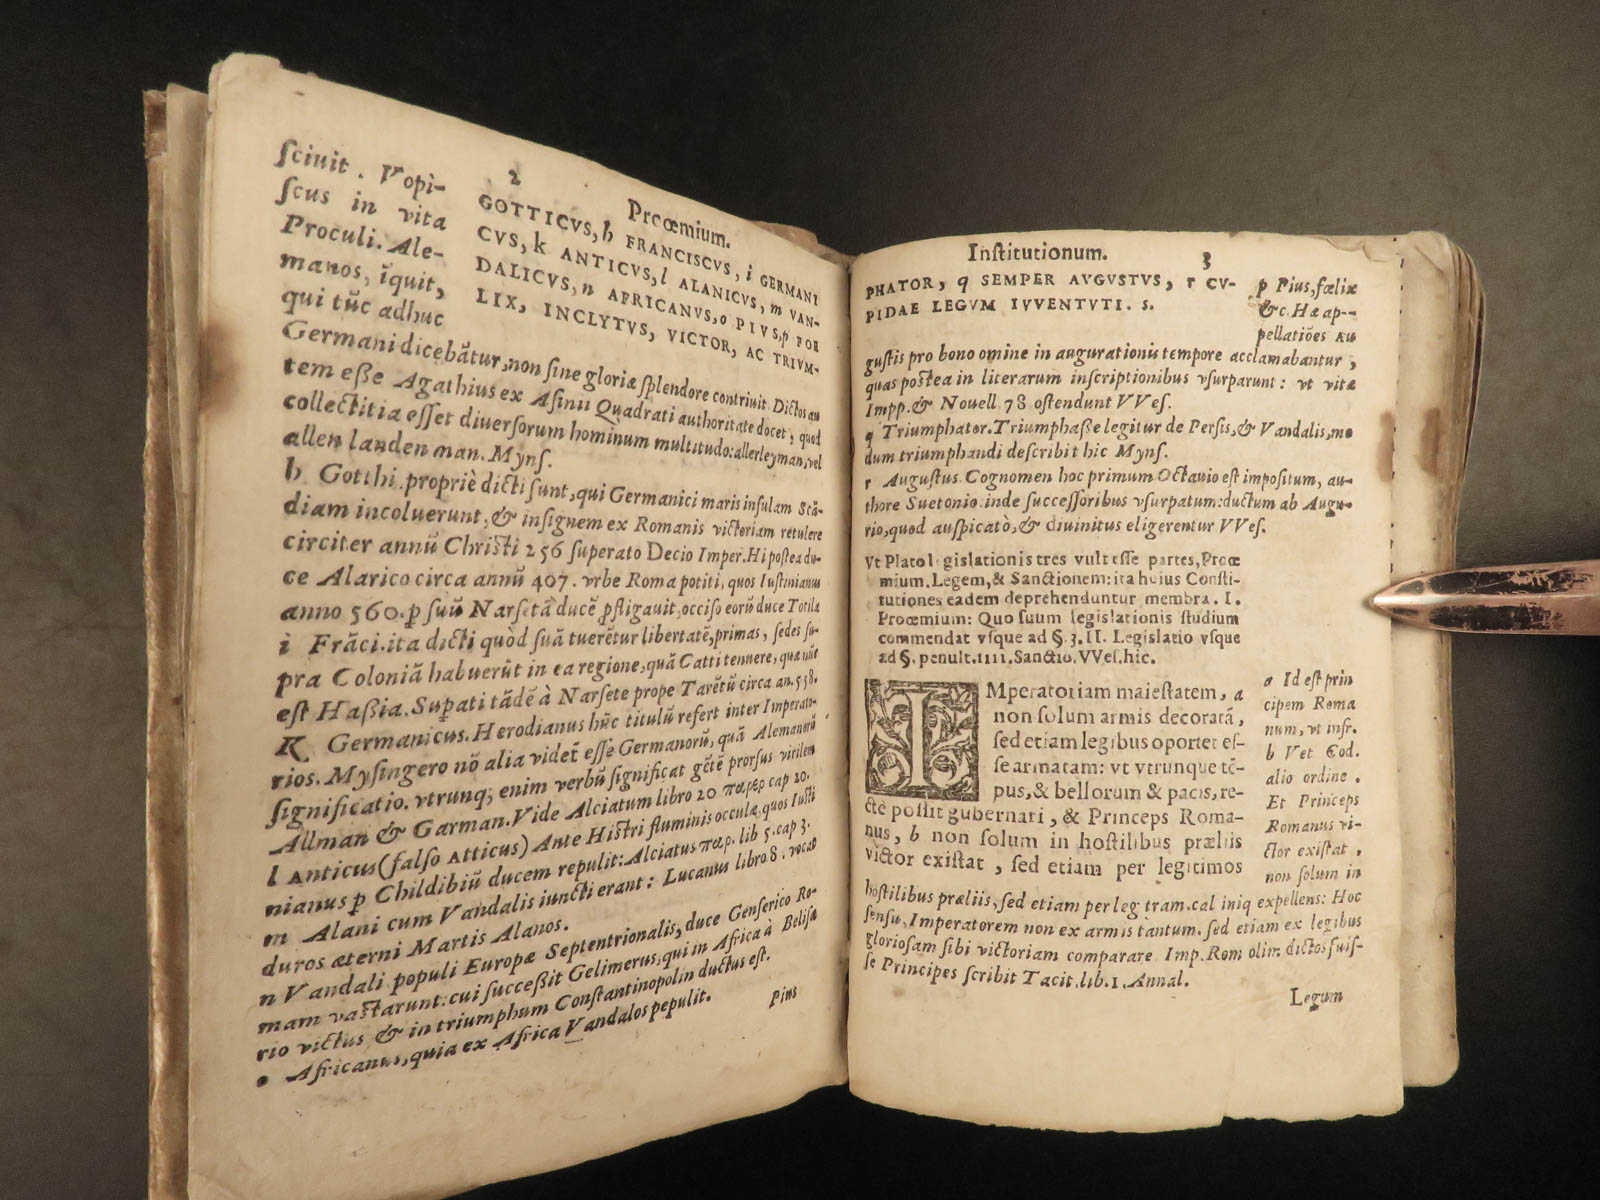 2
Prœmium.
GOTTICVS, h FRANCISCVS, i GERMANI
CVS, k ANTICVS, l ALANICVS, m VAN-
DALICVS, n AFRICANVS, o PIVS, p FOE
LIX, INCLYTVS, VICTOR, AC TRIVM-
ſciuit. Vopi-
ſcus in vita
Proculi. Ale-
manos, ĩquit,
qui tũc adhuc
Germani dicebãtur, non ſine gloriæ ſplendore contriuit. Dictos au
tem eſſe Agathius ex Aſinii Quadrati authoritate docet, quod
collectitia eſſet diuerſorum hominum multitudo: allerleyman, vel
allen landen man. Mynſ.
h Gotthi. propriè dicti ſunt, qui Germanici maris inſulam Scã-
diam incoluerunt, & inſignem ex Romanis victoriam retulere
circiter annũ Chriſti 256 ſuperato Decio Imper. Hi poſtea du-
ce Alarico circa annũ 407. vrbe Roma potiti, quos Iuſtinianus
anno 560. ꝑ ſuũ Narſetã ducẽ ꝓfligauit, occiſo eorũ duce Totila
i Frãci. ita dicti quòd ſuã tuerẽtur libertatẽ, primas, ſedes ſu-
pra Coloniã habuerũt in ea regione, quã Catti tenuere, quæ nũc
eſt Haßia. Supati tãdẽ à Narſete prope Tarẽtũ circa an. 558.
K Germanicus. Herodianus hũc titulũ refert inter Imperato-
rios. Myſingero nõ alia videt̃ eſſe Germanorũ, quã Alemanorũ
ſignificatio. vtrunq; enim verbũ ſignificat gẽtẽ prorſus virilem
Allman & Garman. Vide Alciatum libro 20 παρερ cap 20.
l Anticus (falſo Atticus) Ante Hiſtri fluminis occulæ, quos Iuſti
nianus ꝑ Childibiũ ducem repulit: Alciatus παρ. lib 5. cap 3.
m Alani cum Vandalis iuncti erant: Lucanus libro 8. vocat
duros æterni Martis Alanos.
n Vandali populi Europæ Septentrionalis, duce Genſerico Ro-
mam vaſtarunt: cui ſucceßit Gelimerus, qui in Africa à Beliſa
rio victus & in triumphum Conſtantinopolin ductus eſt.
o Africanus, quia ex Africa Vandalos pepulit.
Pius
Inſtitutionum.
3
PHATOR, q SEMPER AVGVSTVS, r CV-
PIDAE LEGVM IVVENTVTI. S.
p Pius, fœlix
&c. Hæ ap-
pellatiões Au
guſtis pro bono omine in augurationis tempore acclamabantur,
quas poſtea in literarum inſcriptionibus vſurparunt: vt vitæ
Impp. & Nouell 78 oſtendunt VVeſ.
q Triumphator. Triumphaße legitur de Perſis, & Vandalis, mo
dum triumphandi deſcribit hic Mynſ.
r Auguſtus. Cognomen hoc primum Octauio eſt impoſitum, au-
thore Suetonio. inde ſucceſſoribus vſurpatum: ductum ab Augu-
rio, quod auſpicatò, & diuinitus eligerentur VVeſ.
Vt Plato legislationis tres vult eſſe partes, Prœ
mium. Legem, & Sanctionem: ita huius Conſti-
tutiones eadem deprehenduntur membra. I.
Proœmium: Quo ſuum legislationis ſtudium
commendat vſque ad §. 3. II. Legislatio vſque
ad §. penult. IIII. Sanctio. VVeſ. hic.
IMperatoriam maieſtatem, a
non ſolum armis decoratã,
ſed etiam legibus oportet eſ-
ſe armatam: vt vtrunque tẽ-
pus, & bellorum & pacis, re-
ctè poſſit gubernari, & Princeps Roma-
nus, b non ſolum in hoſtilibus præliis
victor exiſtat, ſed etiam per legitimos
a Id eſt prin
cipem Roma
num, vt infr.
b Vet Cod.
alio ordine.
Et Princeps
Romanus vi-
ctor exiſtat,
non ſolum in
hoſtilibus præliis, ſed etiam per leg tram. cal iniq expellens: Hoc
ſenſu, Imperatorem non ex armis tantum. ſed etiam ex legibus
glorioſam ſibi victoriam comparare Imp. Rom olim dictos fuiſ-
ſe Principes ſcribit Tacit. lib. 1. Annal.
Legum